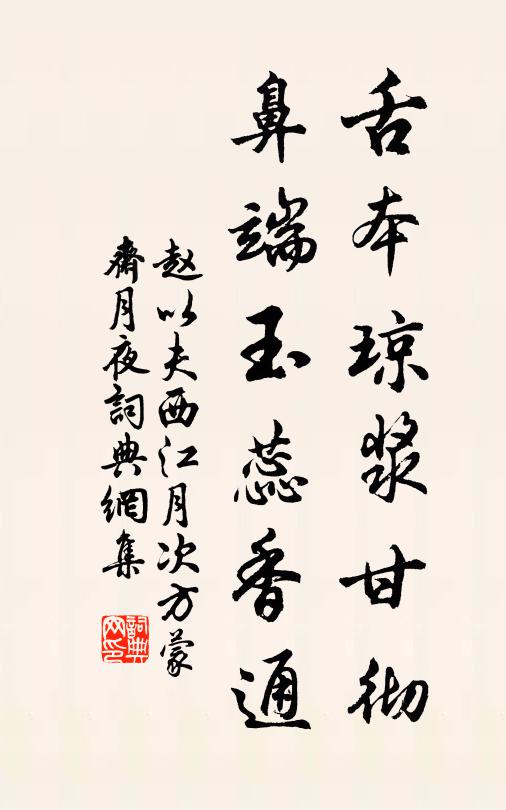 舌本琼浆甘彻
鼻端玉蕊香通
赵以夫西江月次方蒙
斋月夜詞典網集
詞典
网印